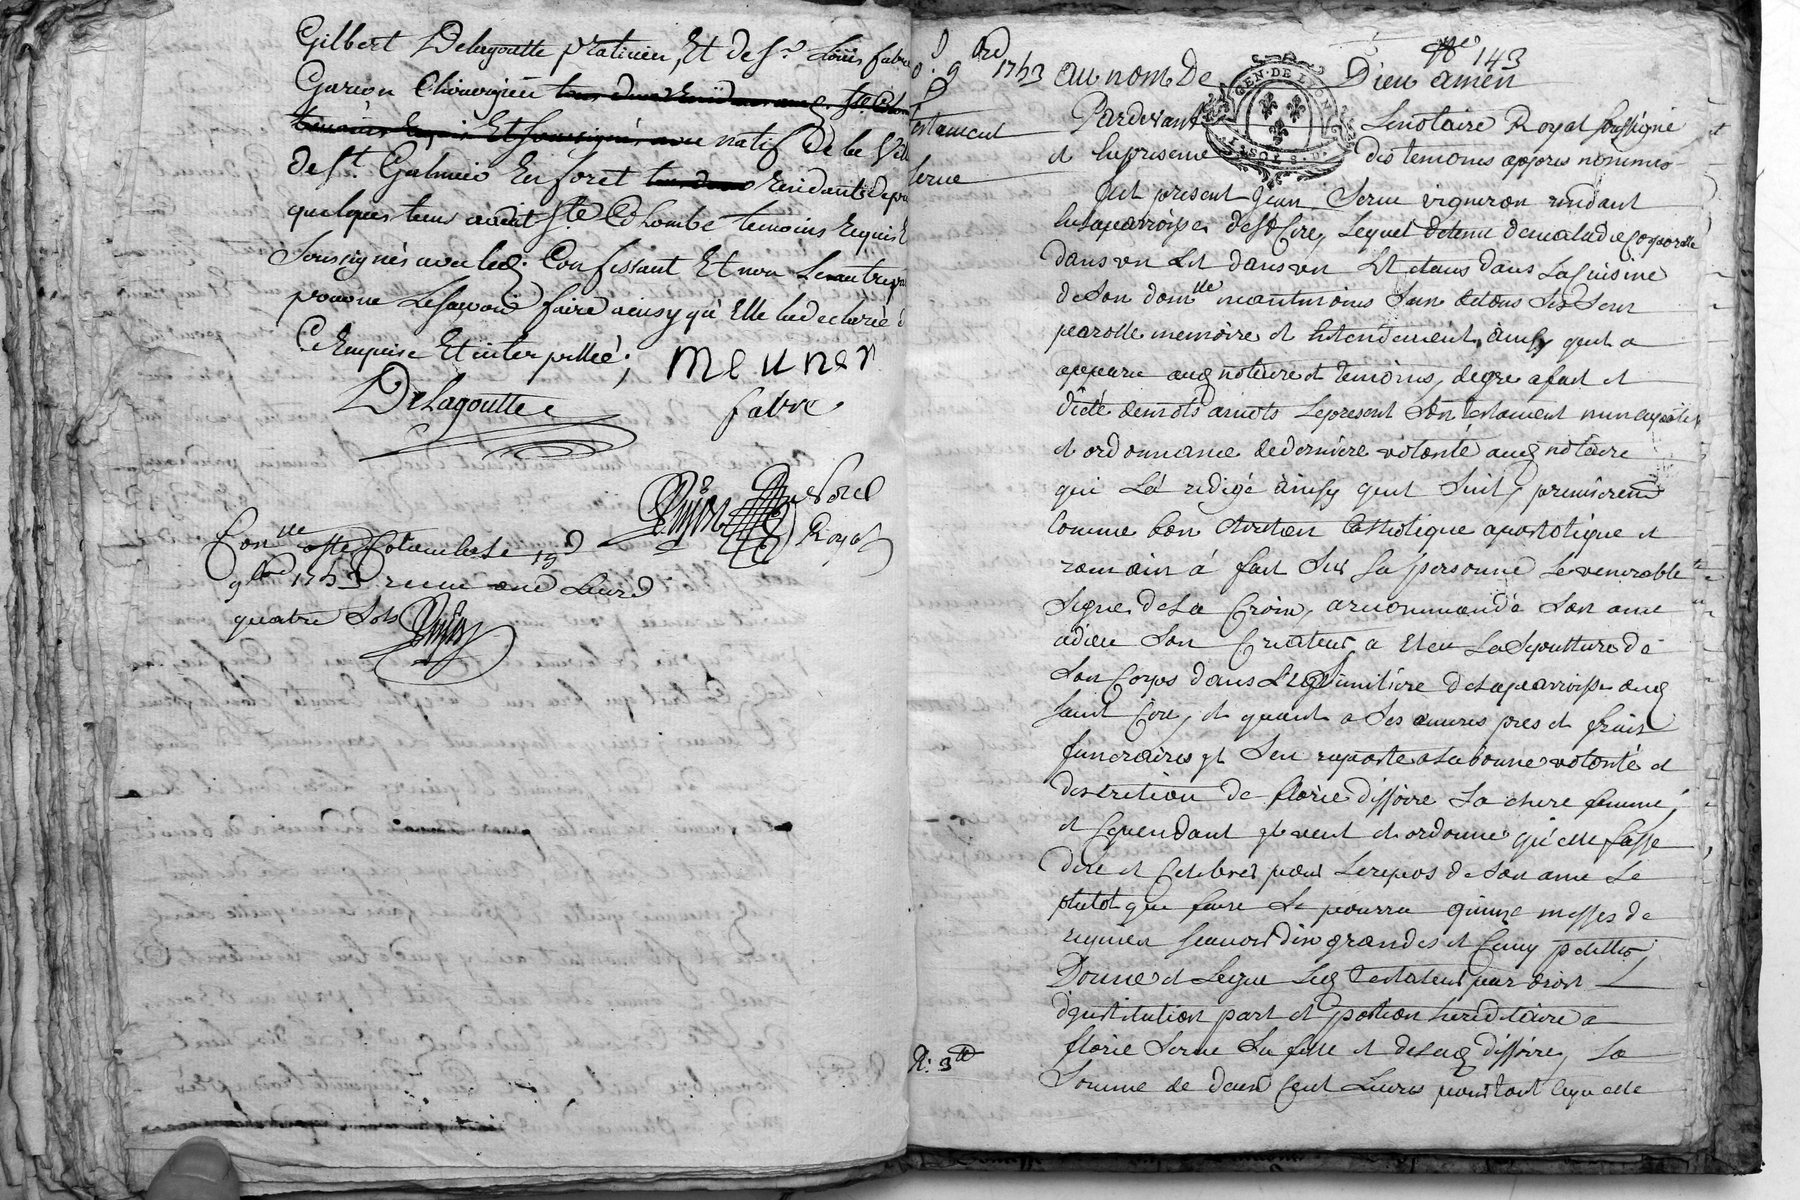 Gilbert Delagoutte praticien, Et de Sr. Loüis fabre
Garcon Chirurgien
natif de la ville
de St. Galmier En foret residant depuis
quelques tems audit Ste Colombe temoins requis Et
Soussignés avec led. Confessant Et non
pouvoir Le sçavoir faire ainsy qu'Elle la declarée
Enquise Et interpellée;
meuner
DeLagoutte
fabre
Royal
Con.lle a Ste Colombe Le 19
9bre 1743 receu une Livre
quatre Sols
N° 143
9 1743
testament
serve
GEN. DE LYON
au nom de Dieu amen
Pardevant Le notaire Royal soussigné
et En presence des temoins appres nommés
fut present Jean Serve vigneron residant
En la parroisse de St Cire, Lequel detenu de maladie corporelle
dans un Lit dans un Lit etans dans La Cuisine
de Son domlle neantmoins Sain de tous Ses Sens
parolle memoire et Entendement, ainsy quil a
apparu aud notaire et temoins, de gré a fait et
dicté de mots a mots Le present Son testament nuncupatif
et ordonnance de derniere volonté aud notaire
qui La redigé ainsy quil Suit, premierent
Comme bon chretien Catholique apostolique et
romain à fait Sur Sa personne Le venerable
Signe de La Croix, a recommandé Son ame
a dieu Son Createur, a Eleu La Sepulture de
Son Corps dans Le Cimitiere de Sa parroisse aud
Saint Cire, et quant a Ses œuvres pies et frais
funeraires il S'en rapporte a La bonne volonté et
discretion de florie dissoire Sa chere femme,
et Cependant il veut et ordonne qu'elle fasse
dire et Celebrer pour Le repos de Son ame Le
plutot que faire Se pourra quinze messes de
requiem Scavoir dix grandes et Cinq petittes,
Donne et Legue Led testateur par droit
d'institution part et portion hereditaire a
florie Serve Sa fille et de Lad dissoire, La
Somme de deux Cent Livres pour tout Ce qu'elle
R. 3tt